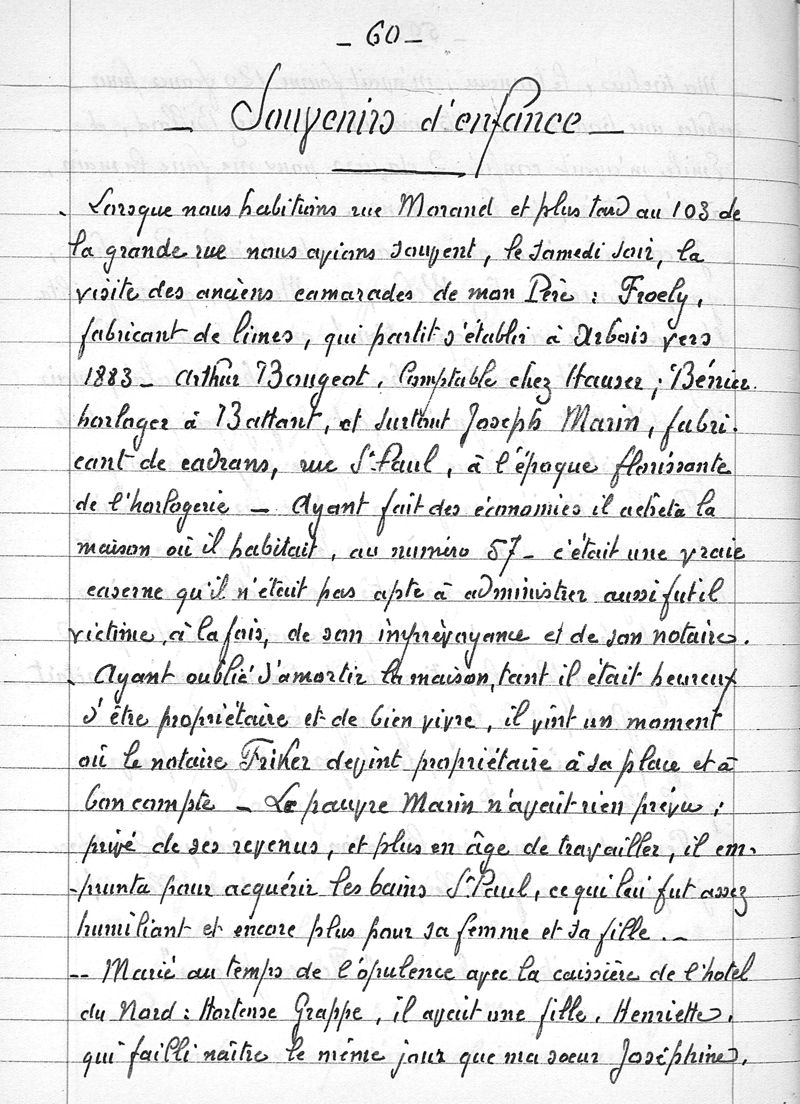 – 60 –
– Souvenirs d'enfance –
Lorsque nous habitions rue Morand et plus tard au 103 de
la grande rue nous avions souvent, le samedi soir, la
visite des anciens camarades de mon Père : Froely,
fabricant de limes, qui partit s'établir à Arbois vers
1883 – Arthur Bougeot, Comptable chez Hauser ; Bénier
horloger à Battant, et surtout Joseph Marin, fabri-
cant de cadrans, rue St Paul, à l'époque florissante
de l'horlogerie – Ayant fait des économies il acheta la
maison où il habitait, au numéro 57 – c'était une vraie
caserne qu'il n'était pas apte à administrer aussi fut il
victime, à la fois, de son imprévoyance et de son notaire.
Ayant oublié d'amortir la maison, tant il était heureux
d'être propriétaire et de bien vivre, il vint un moment
où le notaire Friker devint propriétaire à sa place et à
bon compte – Le pauvre Marin n'avait rien prévu ;
privé de ses revenus, et plus en âge de travailler, il em-
-prunta pour acquérir les bains St Paul, ce qui lui fut assez
humiliant et encore plus pour sa femme et sa fille . –
-- Marié au temps de l'opulence avec la caissière de l'hotel
du Nord : Hortense Grappe, il avait une fille, Henriette,
qui failli naître le même jour que ma soeur Joséphine,